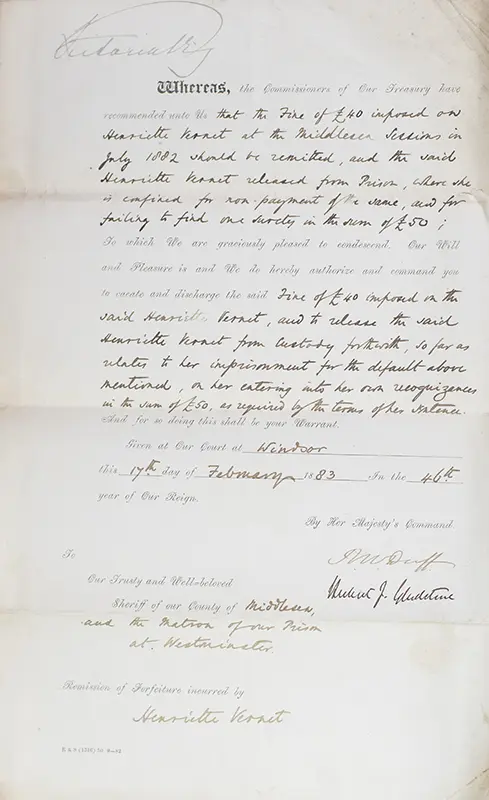 Victoria R
Whereas, the Commissioners of Our Treasury have
recommended unto Us that the Fine of £40 imposed on
Henriette Vernet at the Middlesex Sessions in
July 1882 should be remitted, and the said
Henriette Vernet released from Prison, where she
is confined for non-payment of the same, and for
failing to find one surety in the sum of £50;
To which We are graciously pleased to condescend. Our Will
and Pleasure is and We do hereby authorize and command you
to vacate and discharge the said Fine of £40 imposed on the
said Henriette Vernet, and to release the said
Henriette Vernet from Custody forthwith, so far as
relates to her imprisonment for the default above
mentioned, on her entering into her own recognizances
in the sum of £50, as required by the terms of her sentence.
And for so doing this shall be your Warrant.
Given at Our Court at Windsor
this 17th day of February 1883 In the 46th
year of Our Reign.
By Her Majesty's Command
R W Duff
Herbert J. Gladstone
To
Our Trusty and Well-beloved
Sheriff of our County of Middlesex,
and the Matron of our Prison
at Westminster.
Remission of Forfeiture incurred by
Henriette Vernet